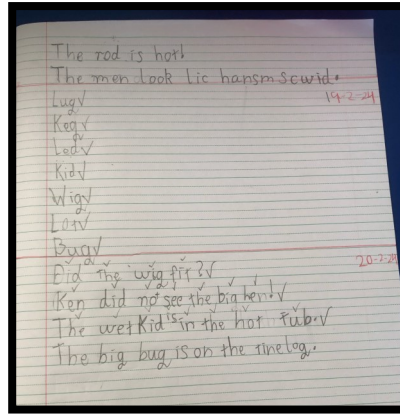 The rod is hot!
The men look lic hansm scwid.
19-2-24
Lug✓
Keg✓
Led✓
Kid✓
Wig✓
Lot✓
Bug✓
20-2-24
Did the wig fit?✓
Ken did no see the big hen!✓
The wet Kid is in the hot tub.✓
The big bug is on the tine log.